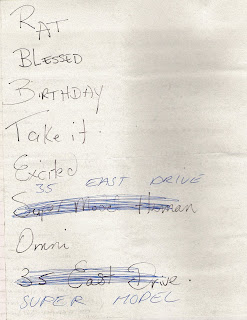 RAT
BLESSED
BIRTHDAY
Take it.
Excited
35 EAST DRIVE
Super Model Human
Omni
35 East Drive.
SUPER MODEL